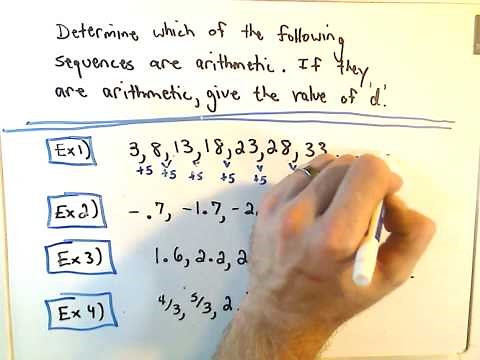 Determine which of the following
sequences are arithmetic. If they
are arithmetic, give the value of 'd'.
Ex 1) 3, 8, 13, 18, 23, 28, 33 . . .
+5 +5 +5 +5 +5
Ex 2) -.7, -1.7, -2.
Ex 3) 1.6, 2.2, 2
Ex 4) 4/3, 5/3, 2